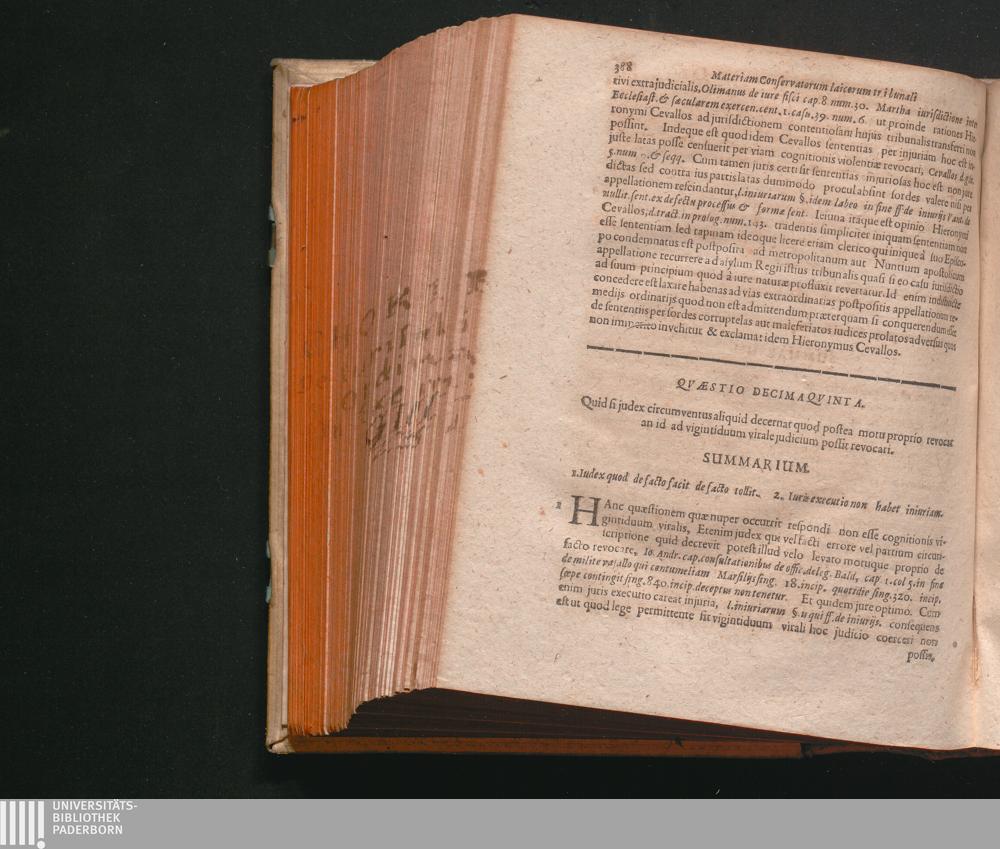 388
Materiam Conservatorum laicorum tribunali
tivi extrajudicialis, Olimanus de iure fisci cap. 8. num. 30. Martha iurisdictione inter
Ecclesiast. & sæcularem exercen. cent. 1. casu. 39. num. 6. ut proinde rationes Hie-
ronymi Cevallos ad jurisdictionem contentiosam hujus tribunalis transferri non
possint. Indeque est quod idem Cevallos sententias per injuriam hoc est in-
juste latas posse censuerit per viam cognitionis violentiæ revocari, Cevallos d. glo.
5. num & seqq. Cum tamen juris certi sit sententias injuriosas hoc est non jure
dictas sed contra ius partis latas dummodo procul absint sordes valere nisi per
appellationem rescindantur, l. iniuriarum §. idem labeo in fine ff de iniurijs
nullit. sent. ex defectu processus & formæ sent. Ieiuna itaque est opinio Hieronymi
Cevallos, d. tract. in prolog. num. 143. tradentis simpliciter iniquam sententiam non
esse sententiam sed rapinam ideoque licere etiam clerico qui inique à suo Episco-
po condemnatus est postposita ad metropolitanum aut Nuntium apostolicum
appellatione recurrere ad asylum Regij istius tribunalis quasi si eo casu iurisdictio
ad suum principium quod à iure naturæ profluxit revertatur. Id enim indistincte
concedere est laxare habenas ad vias extraordinarias postpositis appellationum re-
medijs ordinarijs quod non est admittendum præterquam si conquerendum esset
de sententijs per sordes corruptelas aut maleferiatos iudices prolatos adversus quos
non immerito invehitur & exclamat idem Hieronymus Cevallos.
QVÆSTIO DECIMAQVINTA.
Quid si judex circumventus aliquid decernat quod postea motu proprio revocat
an id ad vigintiduum virale judicium possit revocari.
SUMMARIUM.
1. Iudex quod de facto facit de facto tollit. 2. Iuris executio non habet iniuriam.
1 HAnc quæstionem quæ nuper occurrit respondi non esse cognitionis vi-
gintiduum viralis, Etenim judex quæ vel facti errore vel partium circum-
scriptione quid decrevit potest illud velo levato motuque proprio de
facto revocare, Io. Andr. cap. consultationibus de offic. deleg. Bald, cap 1. col 5. in fine
de milite vasallo qui contumeliam Marsilijs sing. 18. incip. quotidie sing. 320. incip.
sæpe contingit sing. 840. incip. deceptus non tenetur. Et quidem jure optimo. Cum
enim juris executio careat injuria, l. iniuriarum §. 1 qui ff. de iniurijs. consequens
est ut quod lege permittente fit vigintiduum virali hoc judicio coerceri non
possit.
UNIVERSITÄTS-
BIBLIOTHEK
PADERBORN